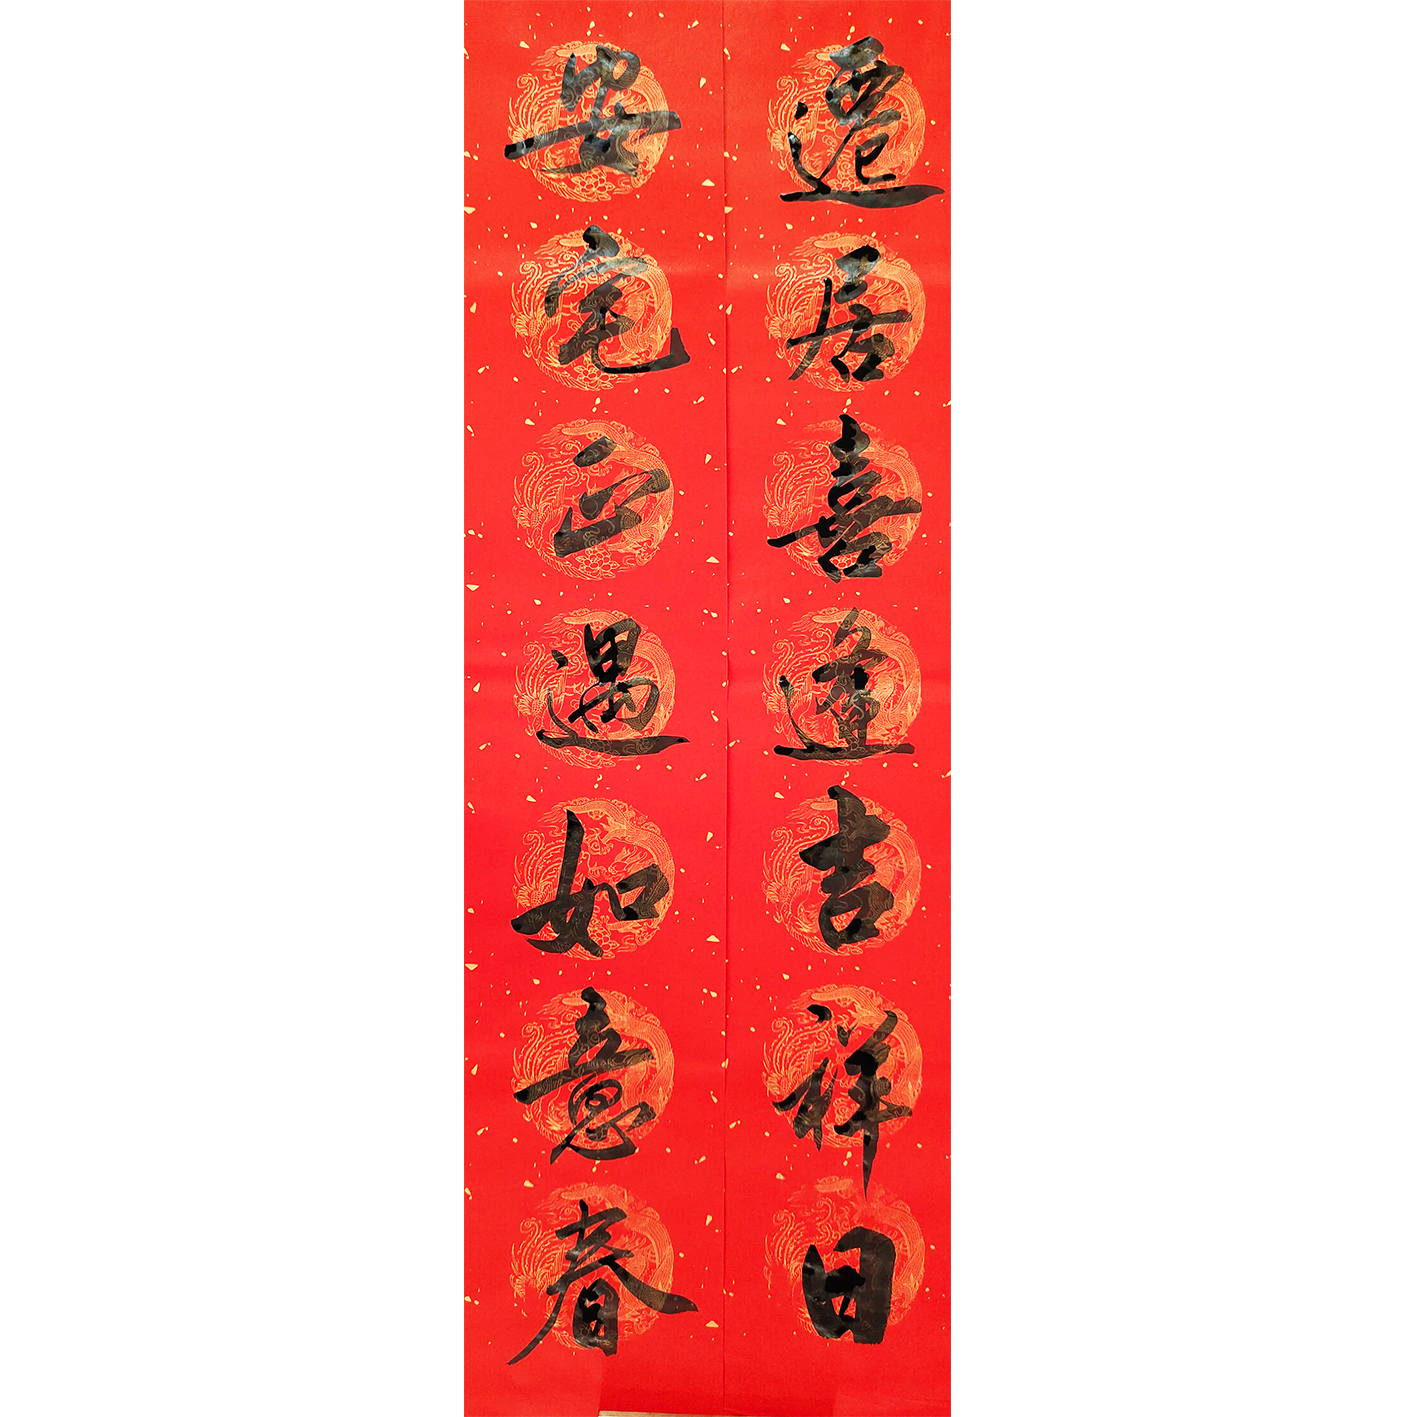 遷居喜逢吉祥日
安宅正遇如意春